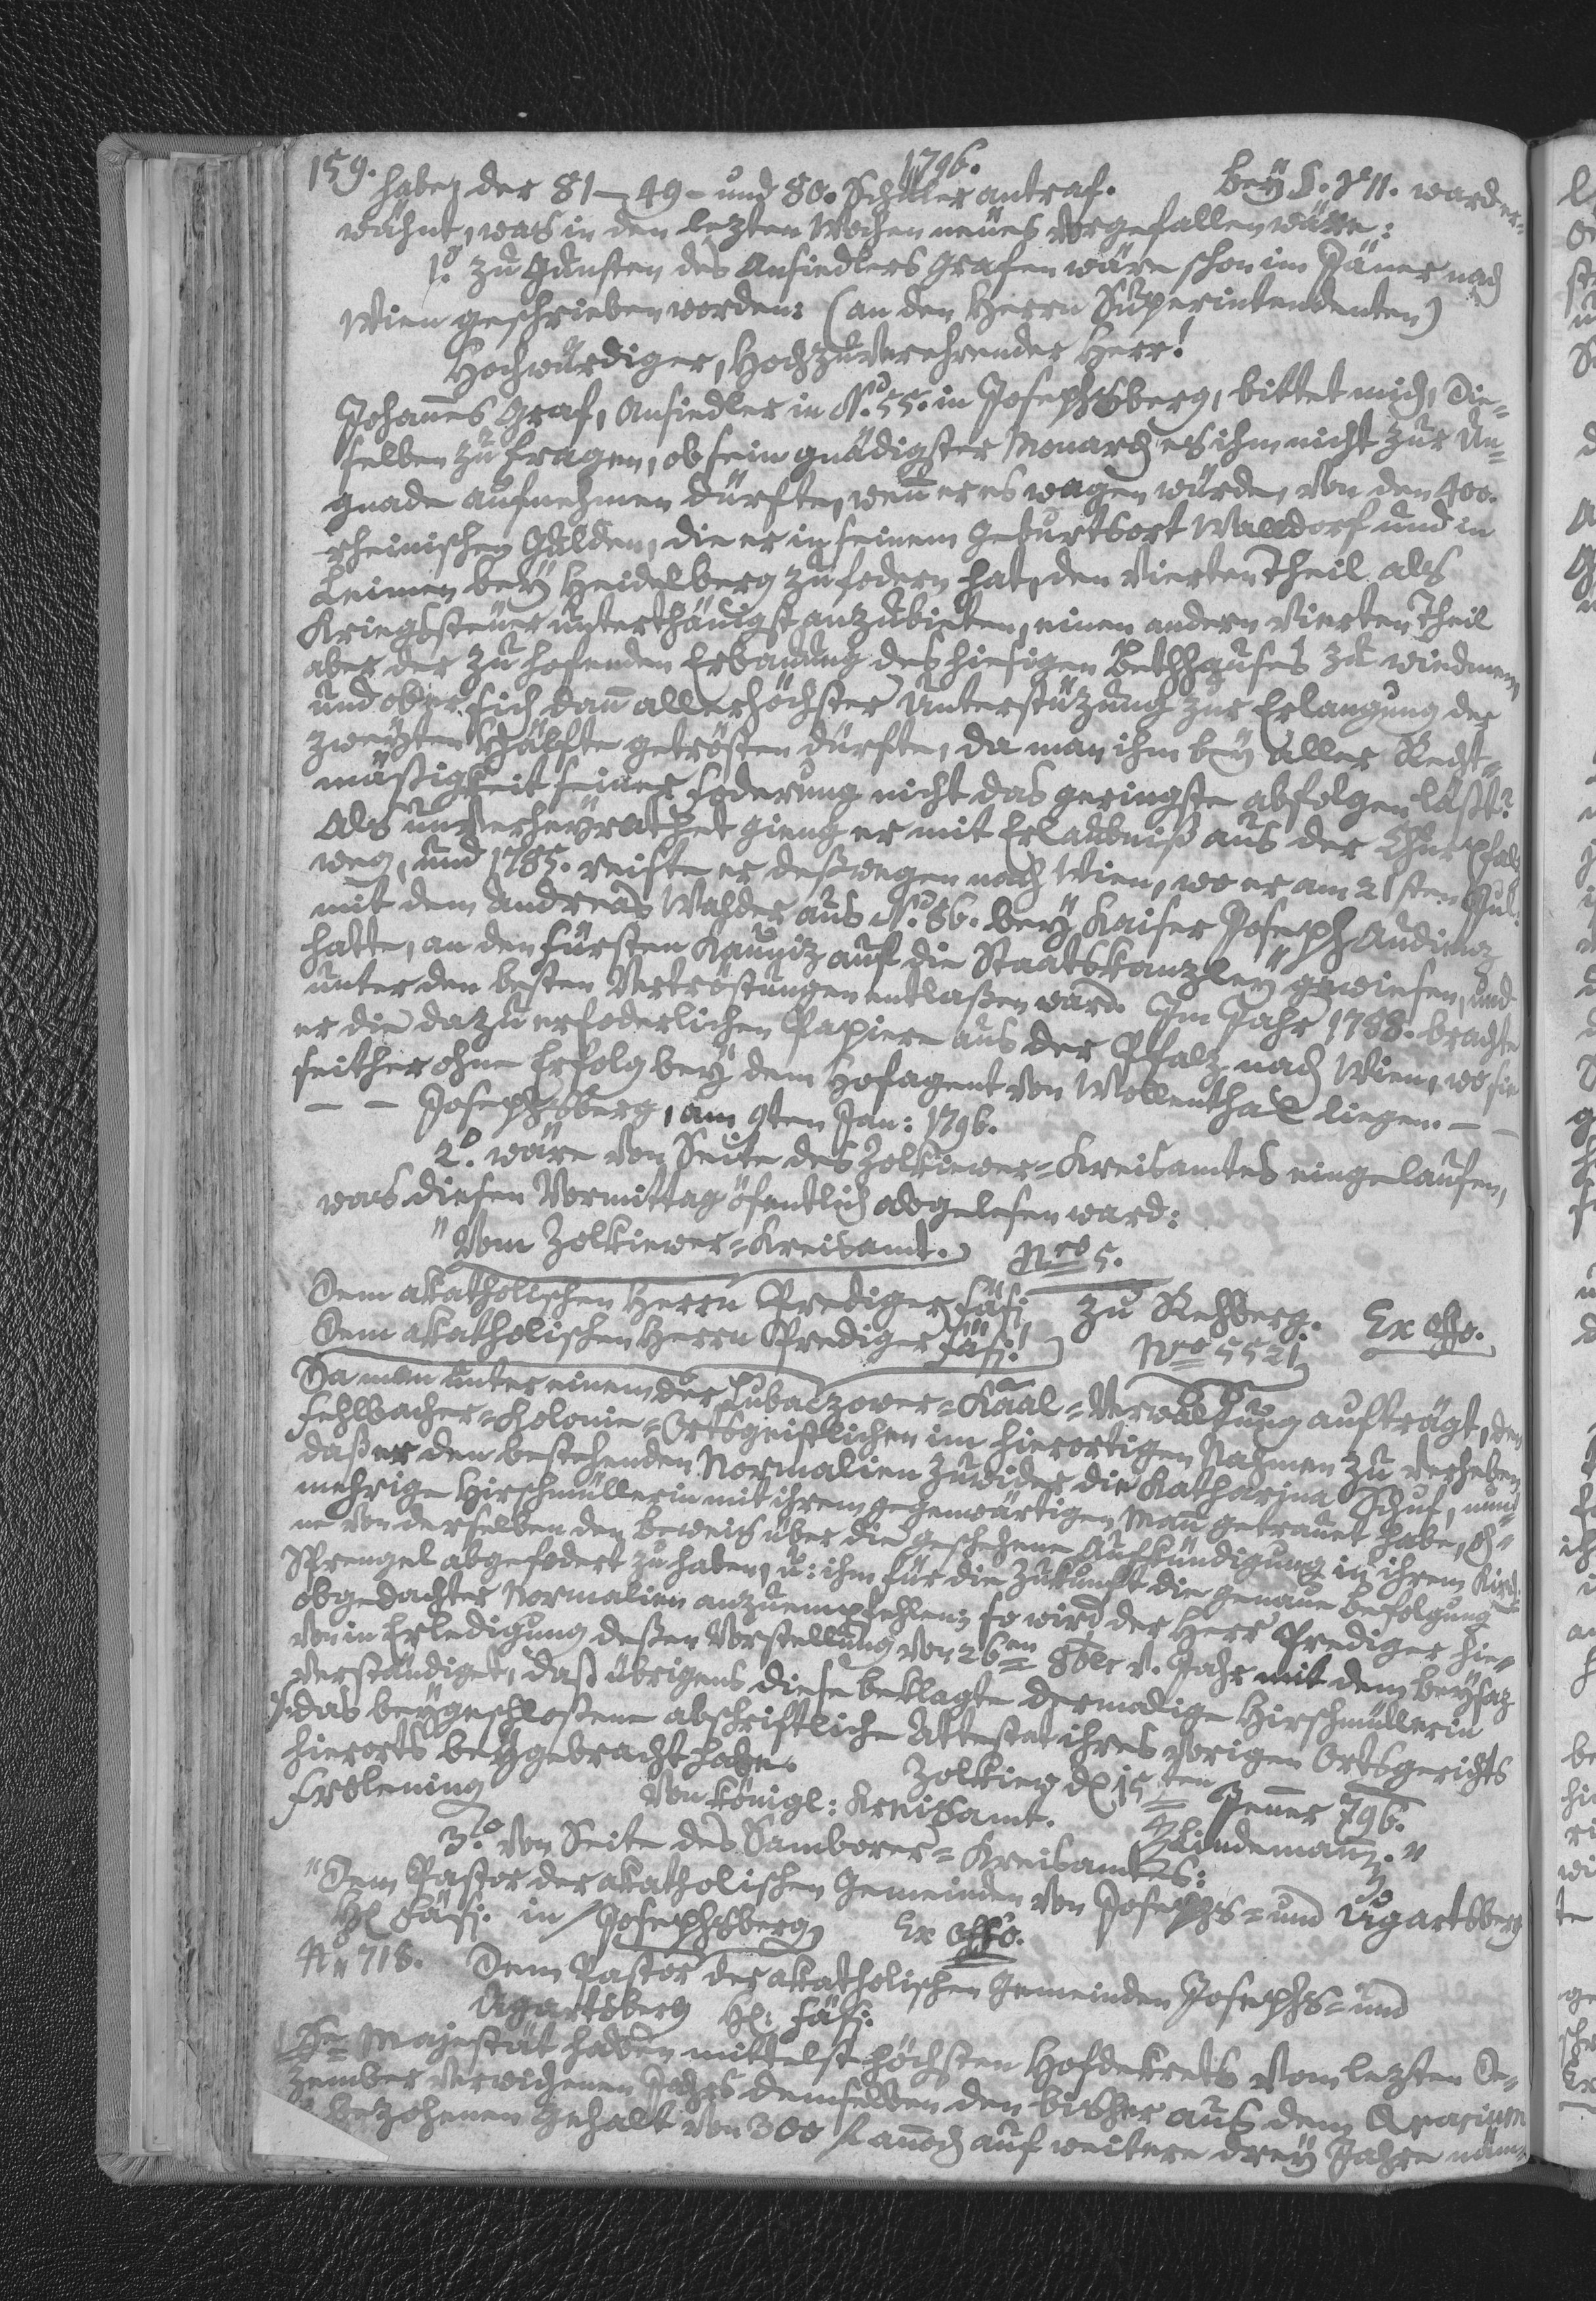 159.
1796.
habe, der 81-, 49- und 80. Schüler antraf. Bey S. Nº 11. ward er-
wähnt, was in den lezten Wochen neues vorgefallen wäre:
1º. zu Gunsten des Ansiedlers Grafen wäre schon im Jäner nach
Wien geschrieben worden: (an den Herrn Superintendenten)
Hochwürdiger, Hochzuverehrender Herr!
Johañes Graf, Ansiedler in Nº. 55. in Josephsberg, bittet mich, Die-
selben zu fragen, ob sein gnädigster Monarch es ihm nicht zur Un-
gnade aufnehmen dürfte, weñ er es wagen würde, von den 400.
rheinischen Gulden, die er in seinem Geburtsort Walldorf und in
Leimen bey Heidelberg zu fodern hat, den vierten Theil als
Kriegssteuer unterthänigst anzubieten, einen andern vierten Theil
aber der zu hofenden Erbauung des hiesigen Bethhauses zu wiedmen,
und ob er sich dañ allerhöchster Unterstüzung zur Erlangung der
zweyten Hälfte getrösten dürfte, da man ihm bey aller Recht-
mäßigkeit seiner Foderung nicht das geringste abfolgen läßt?
Als unverheyrathet gieng er mit Erlaubniß aus der Churpfalz
weg, und 1785. reiste er deßwegen nach Wien, wo er am 21sten Jul:
mit dem Andreas Walder aus Nº. 86. bey Kaiser Joseph Audienz
hatte, an den Fürsten Kauniz auf die Staatskanzley gewiesen, und
unter den besten Vertröstungen entlaßen ward. Im Jahr 1788. brachte
er die dazu erfoderlichen Papiere aus der Pfalz nach Wien, wo sie
seither ohne Erfolg bey dem Hofagent von Wollenthal liegen. — —
— — Josephsberg, am 9ten Jan: 1796.
2º. wäre von Seite des Zolkiewer-Kreisamtes eingelaufen,
was diesen Vormittag öfentlich abgelesen ward:
"Vom Zolkiewer-Kreisamt. Nro 5.
Dem akatholischen Herrn Prediger Fäsi zu Rehberg. Ex offo.
Dem akatholischen Herrn Prediger Fäsi! Nro 5521
Da man unter einem der Lubaczower-Kaal-Verwaltung aufträgt, dem
Fehlbacher-Kolonie-Ortsgeistlichen im hierortigen Nahmen zu verheben,
daß er den bestehenden Normalien zuwider die Katharina Schuf, nun-
mehrige Hirschmüllerin mit ihrem gegenwärtigen Mañ getrauet habe, oh-
ne von derselben den Beweis über die geschehene Aufkündigung in ihrem Kirch-
Sprengel abgefodert zu haben, u: ihm für die Zukunft die genaue Befolgung
obgedachter Normalien anzuempfehlen; so wird der Herr Prediger hie-
von in Erledigung deßen Vorstellung von 26en 8ber v. Jahr mit dem Beysaz
verständiget, daß übrigens diese beklagte dermalige Hirschmüllerin
das beygeschloßene abschriftliche Attestat ihres vorigen Ortsgerichts
hierorts beygebracht habe. Zolkiew d 15ten Jenner 796.
Von königl: Kreisamt. Lindemañ."
3º. von Seite des Samborer-Kreisamtes:
"Dem Pastor der akatholischen Gemeinden von Josephs- und Ugartsberg
H Fäsi. in Josephsberg Ex offo.
N 718. Dem Pastor der akatholischen Gemeinden Josephs- und
Ugartsberg H: Fäsi:
Se Majestät haben mittelst höchsten Hofdekrets vom lezten De-
zember verwichenen Jahrs demselben den bisher aus dem Aerarium
bezohenen Gehalt von 300 f annoch auf weitere drey Jahre näm-